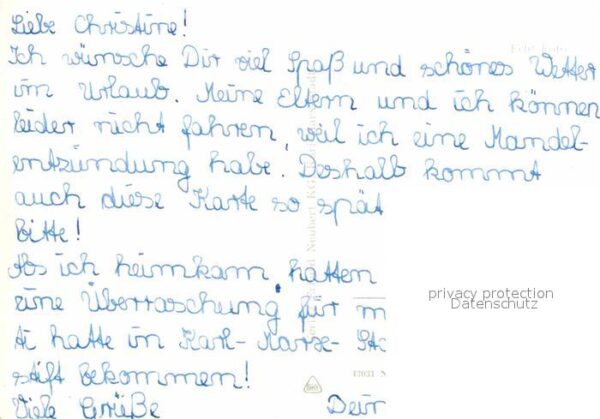 Liebe Christine!
Ich wünsche Dir viel Spaß und schönes Wetter
im Urlaub. Meine Eltern und ich können
leider nicht fahren, weil ich eine Mandel-
entzündung habe. Deshalb kommt
auch diese Karte so spät
Bitte!
Als ich heimkam, hatten
eine Überraschung für m
ti hatte in Karl-Marx-Sta
stift bekommen!
Viele Grüße Dein
privacy protection
Datenschutz